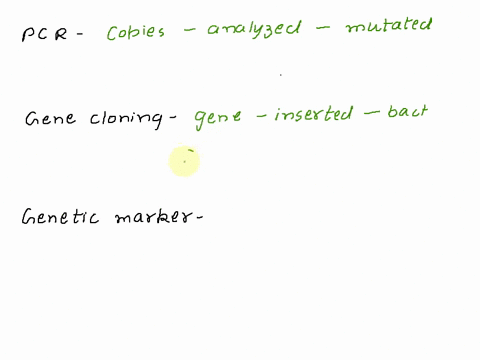 PCR - Cobies - analyzed - mutated
Gene cloning - gene - inserted - bact
Genetic marker -